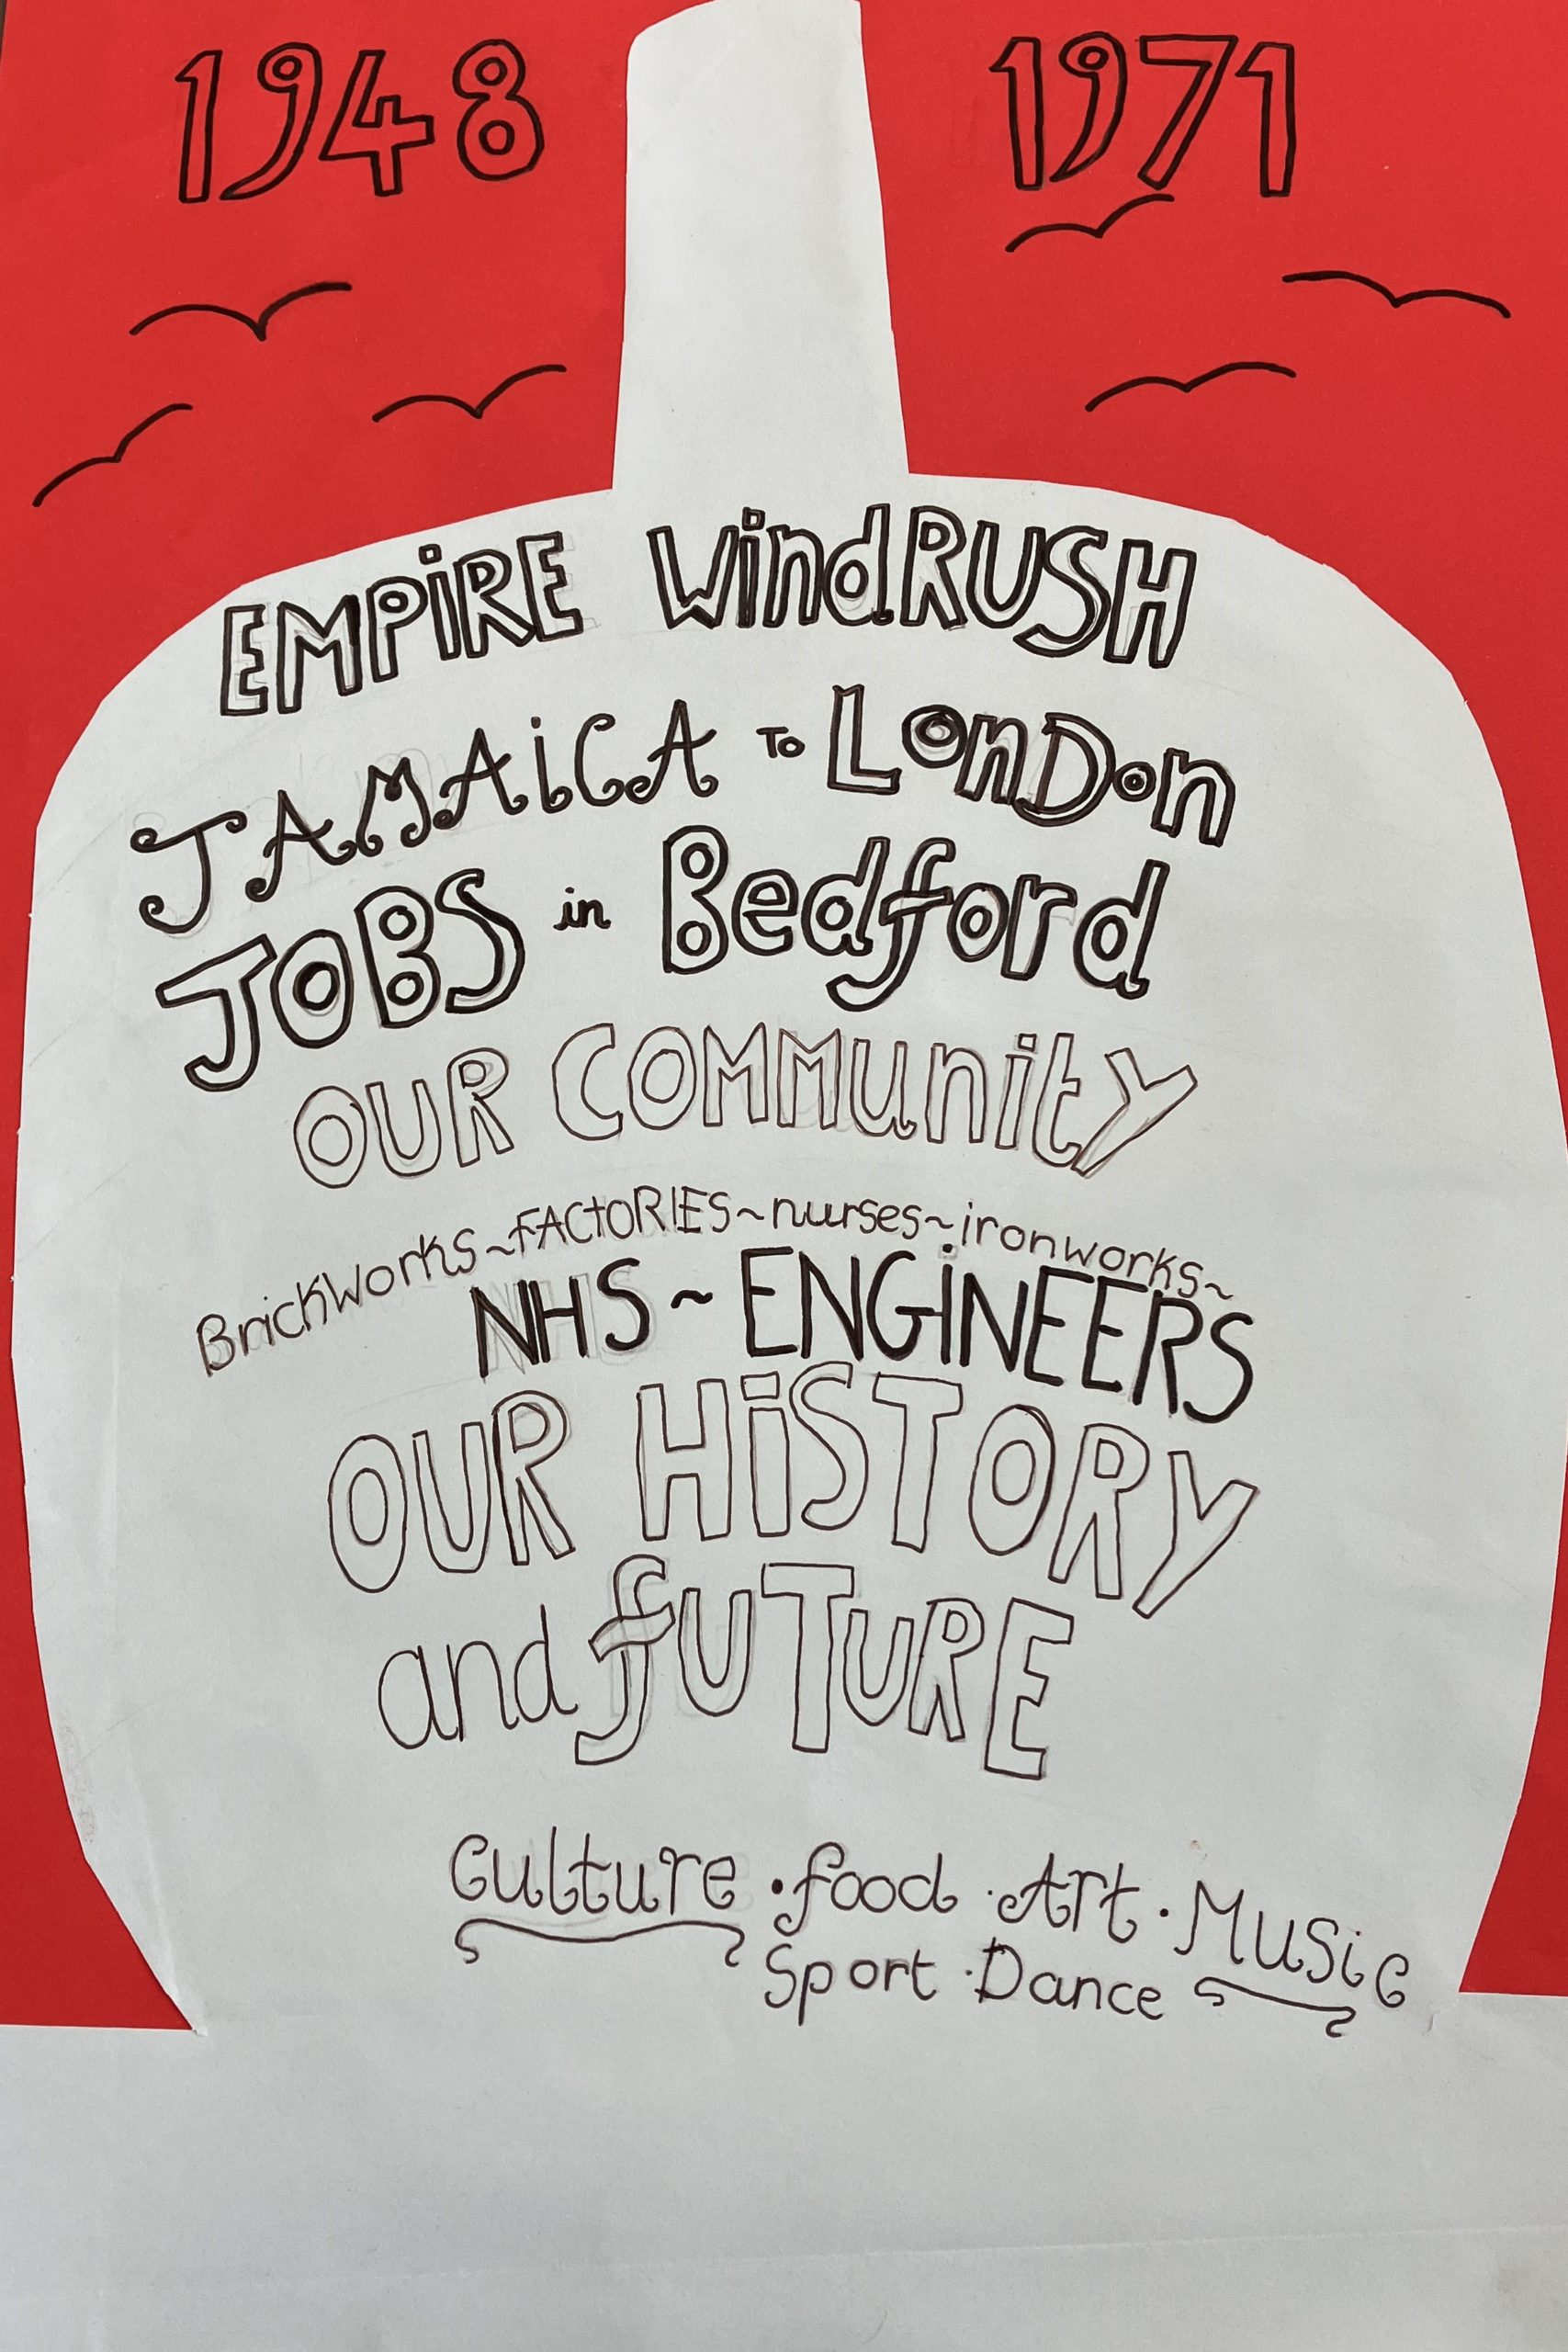 1948 1971
EMPiRE WindRUSH
JAMAiCA To LonDon
JOBS in Bedford
OUR COMMunity
BrickWorks~FACtORIES~nurses~ironworks~
NHS ~ ENGiNEERS
OUR HiSTORY
and fUTURE
Culture · food · Art · Music
Sport · Dance